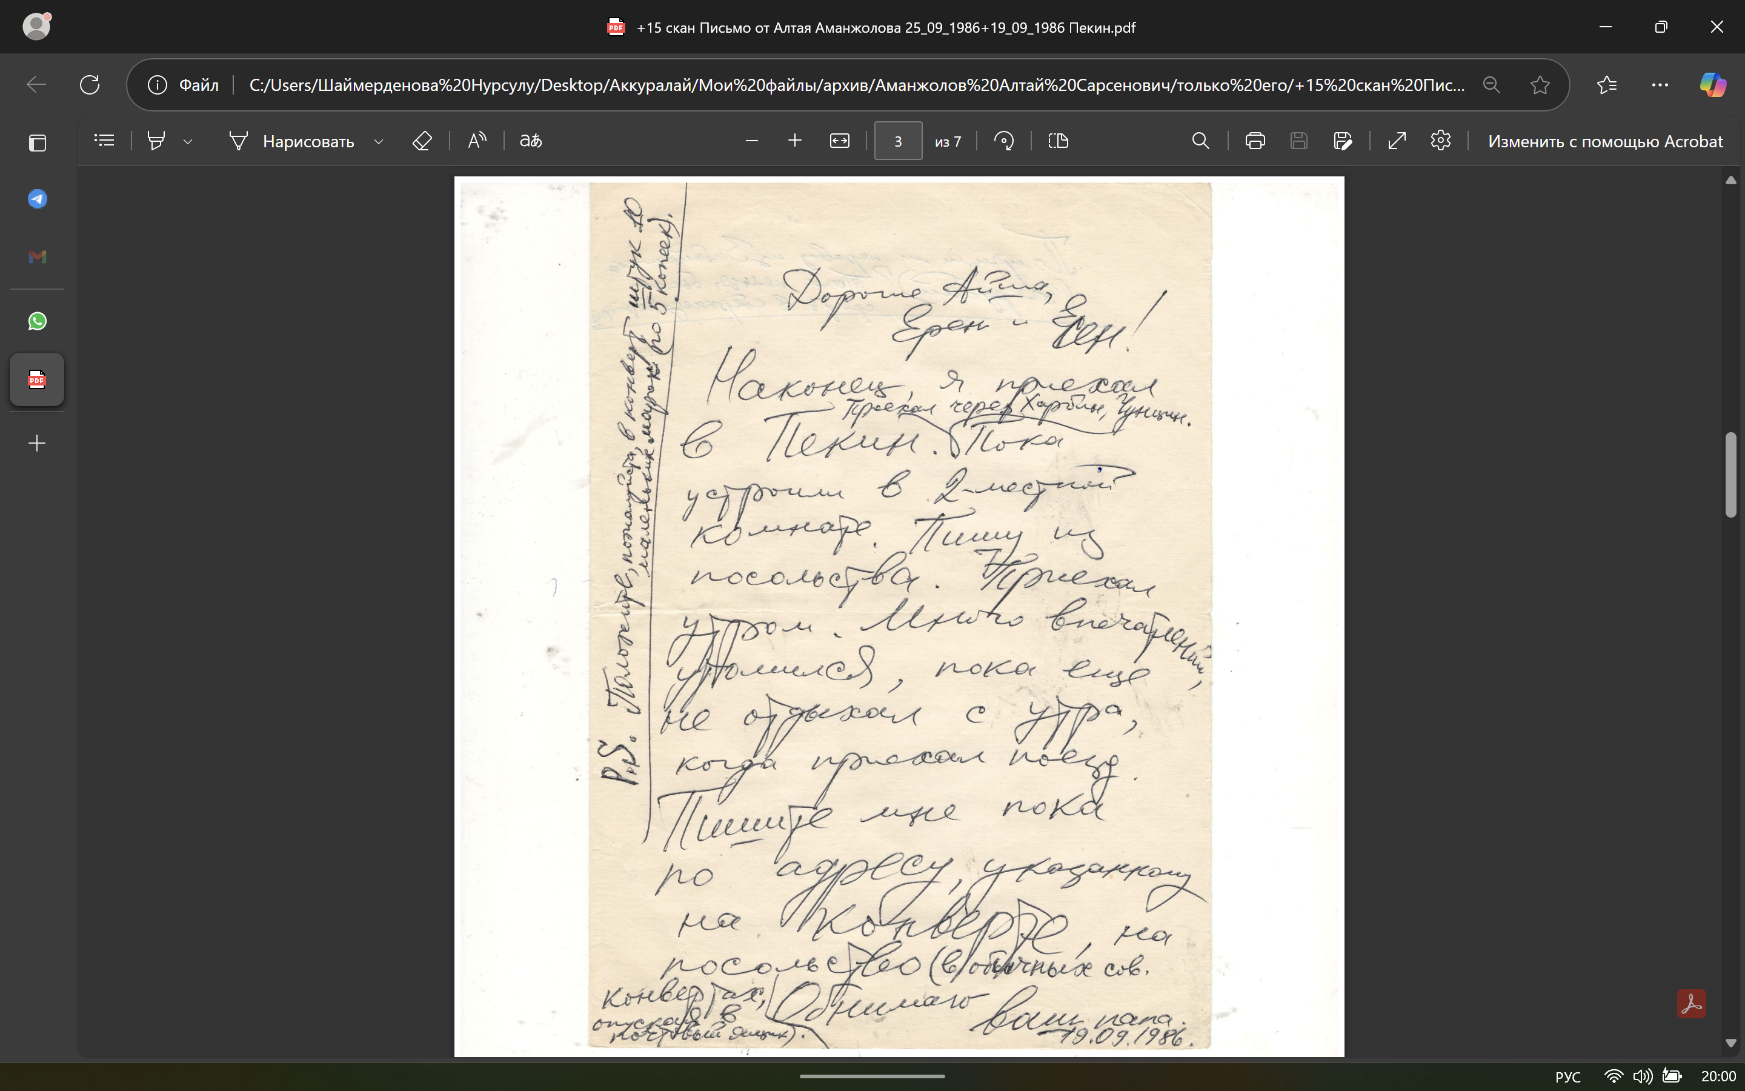 +15 скан Письмо от Алтая Аманжолова 25_09_1986+19_09_1986 Пекин.pdf
Файл
C:/Users/Шаймерденова%20Нурсулу/Desktop/Аккуралай/Мои%20файлы/архив/Аманжолов%20Алтай%20Сарсенович/только%20его/+15%20скан%20Пис...
Нарисовать
aあ
3 из 7
Изменить с помощью Acrobat
Дорогие Айша,
Ерен и Есен!
Наконец, я приехал
Проехал через Харбин,
в Пекин. Пока
устроили в 2-местной
комнате. Пишу из
посольства. Приехал
утром. Много впечатлений,
утомился, пока еще
не отдыхал с утра,
когда приехал поезд.
Пишите мне пока
по адресу, указанному
на конверте, на
посольство (в обычных сов.
конвертах,
опуская в
почтовый ящик).
Обнимаю
ваш папа.
19.09.1986.
P.S. Положите, пожалуйста, в конверт штук 10
маленьких марок (по 5 копеек).
РУС
20:00